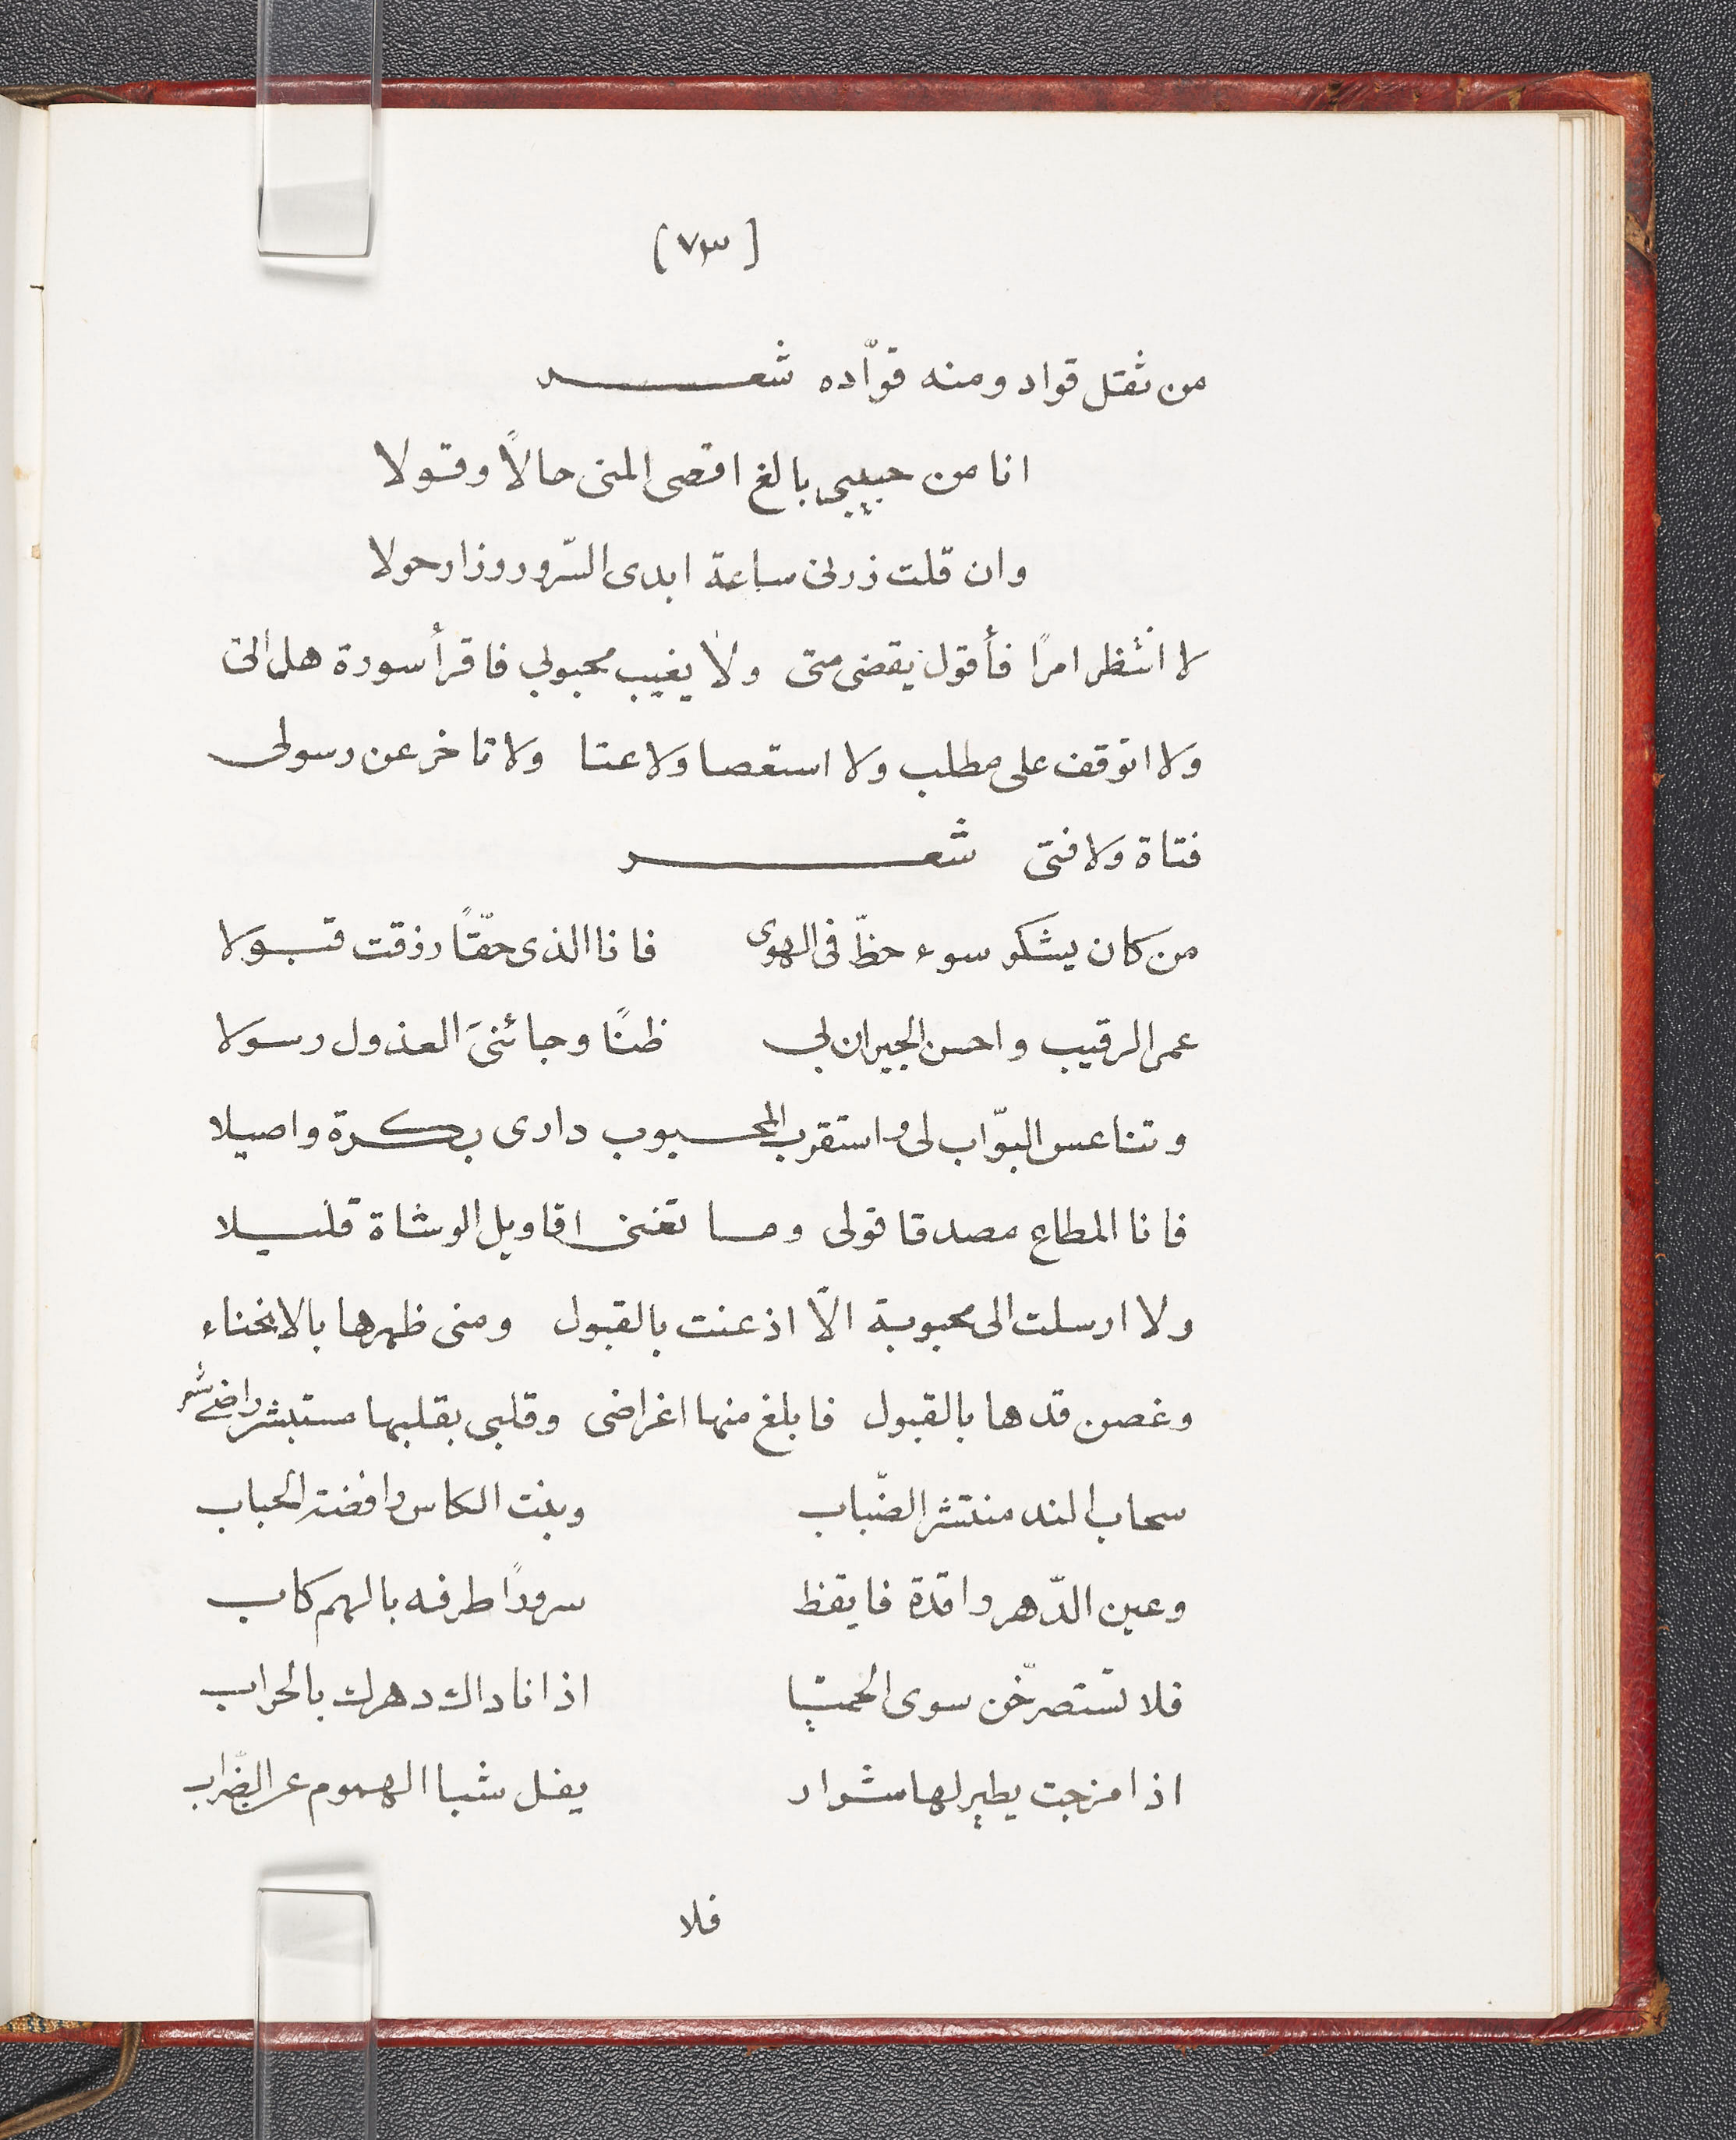 [٧٣]
من ثقل قواد ومنه قوّاده شعر
انا من حبيبي بالغ اقصى المنى حالاً وقولا
وان قلت زرنى ساعة ابدى السّرور وزار حولا
لا انتظر امرًا فأقول يقضى متى ولا يغيب محبوبي فاقرأ سورة هل اتى
ولا اتوقف على مطلب ولا استعصا ولا عتا ولا تاخر عن رسولى
فتاة ولا فتى شعر
من كان يشكو سوء حظّ فى الهوى فانا الذى حقّتًا رزقت قبولا
عمر الرقيب واحسن الجيران لي ظنًا وجائنى العذول رسولا
وتناعس البوّاب لى واستقرب المحبوب دارى بكرة واصيلا
فانا المطاع مصدقا قولى وما تغنى اقاويل الوشاة قليلا
ولا ارسلت الى محبوبة الّا اذعنت بالقبول ومنى ظهرها بالانحناء
وغصن قدها بالقبول فابلغ منها اغراضى وقلبى بقلبها مستبشر راضى شعر
سحاب الند منتشر الضّباب وبنت الكاس رافضة الحباب
وعين الدّهر راقدة فايقظ سرورًا طرفه بالهم كاب
فلا تستصرخّن سوى الحميّا اذا ناداك دهرك بالحراب
اذا مزجت يطير لها شرار يفل شبا الهموم عن الضّراب
فلا